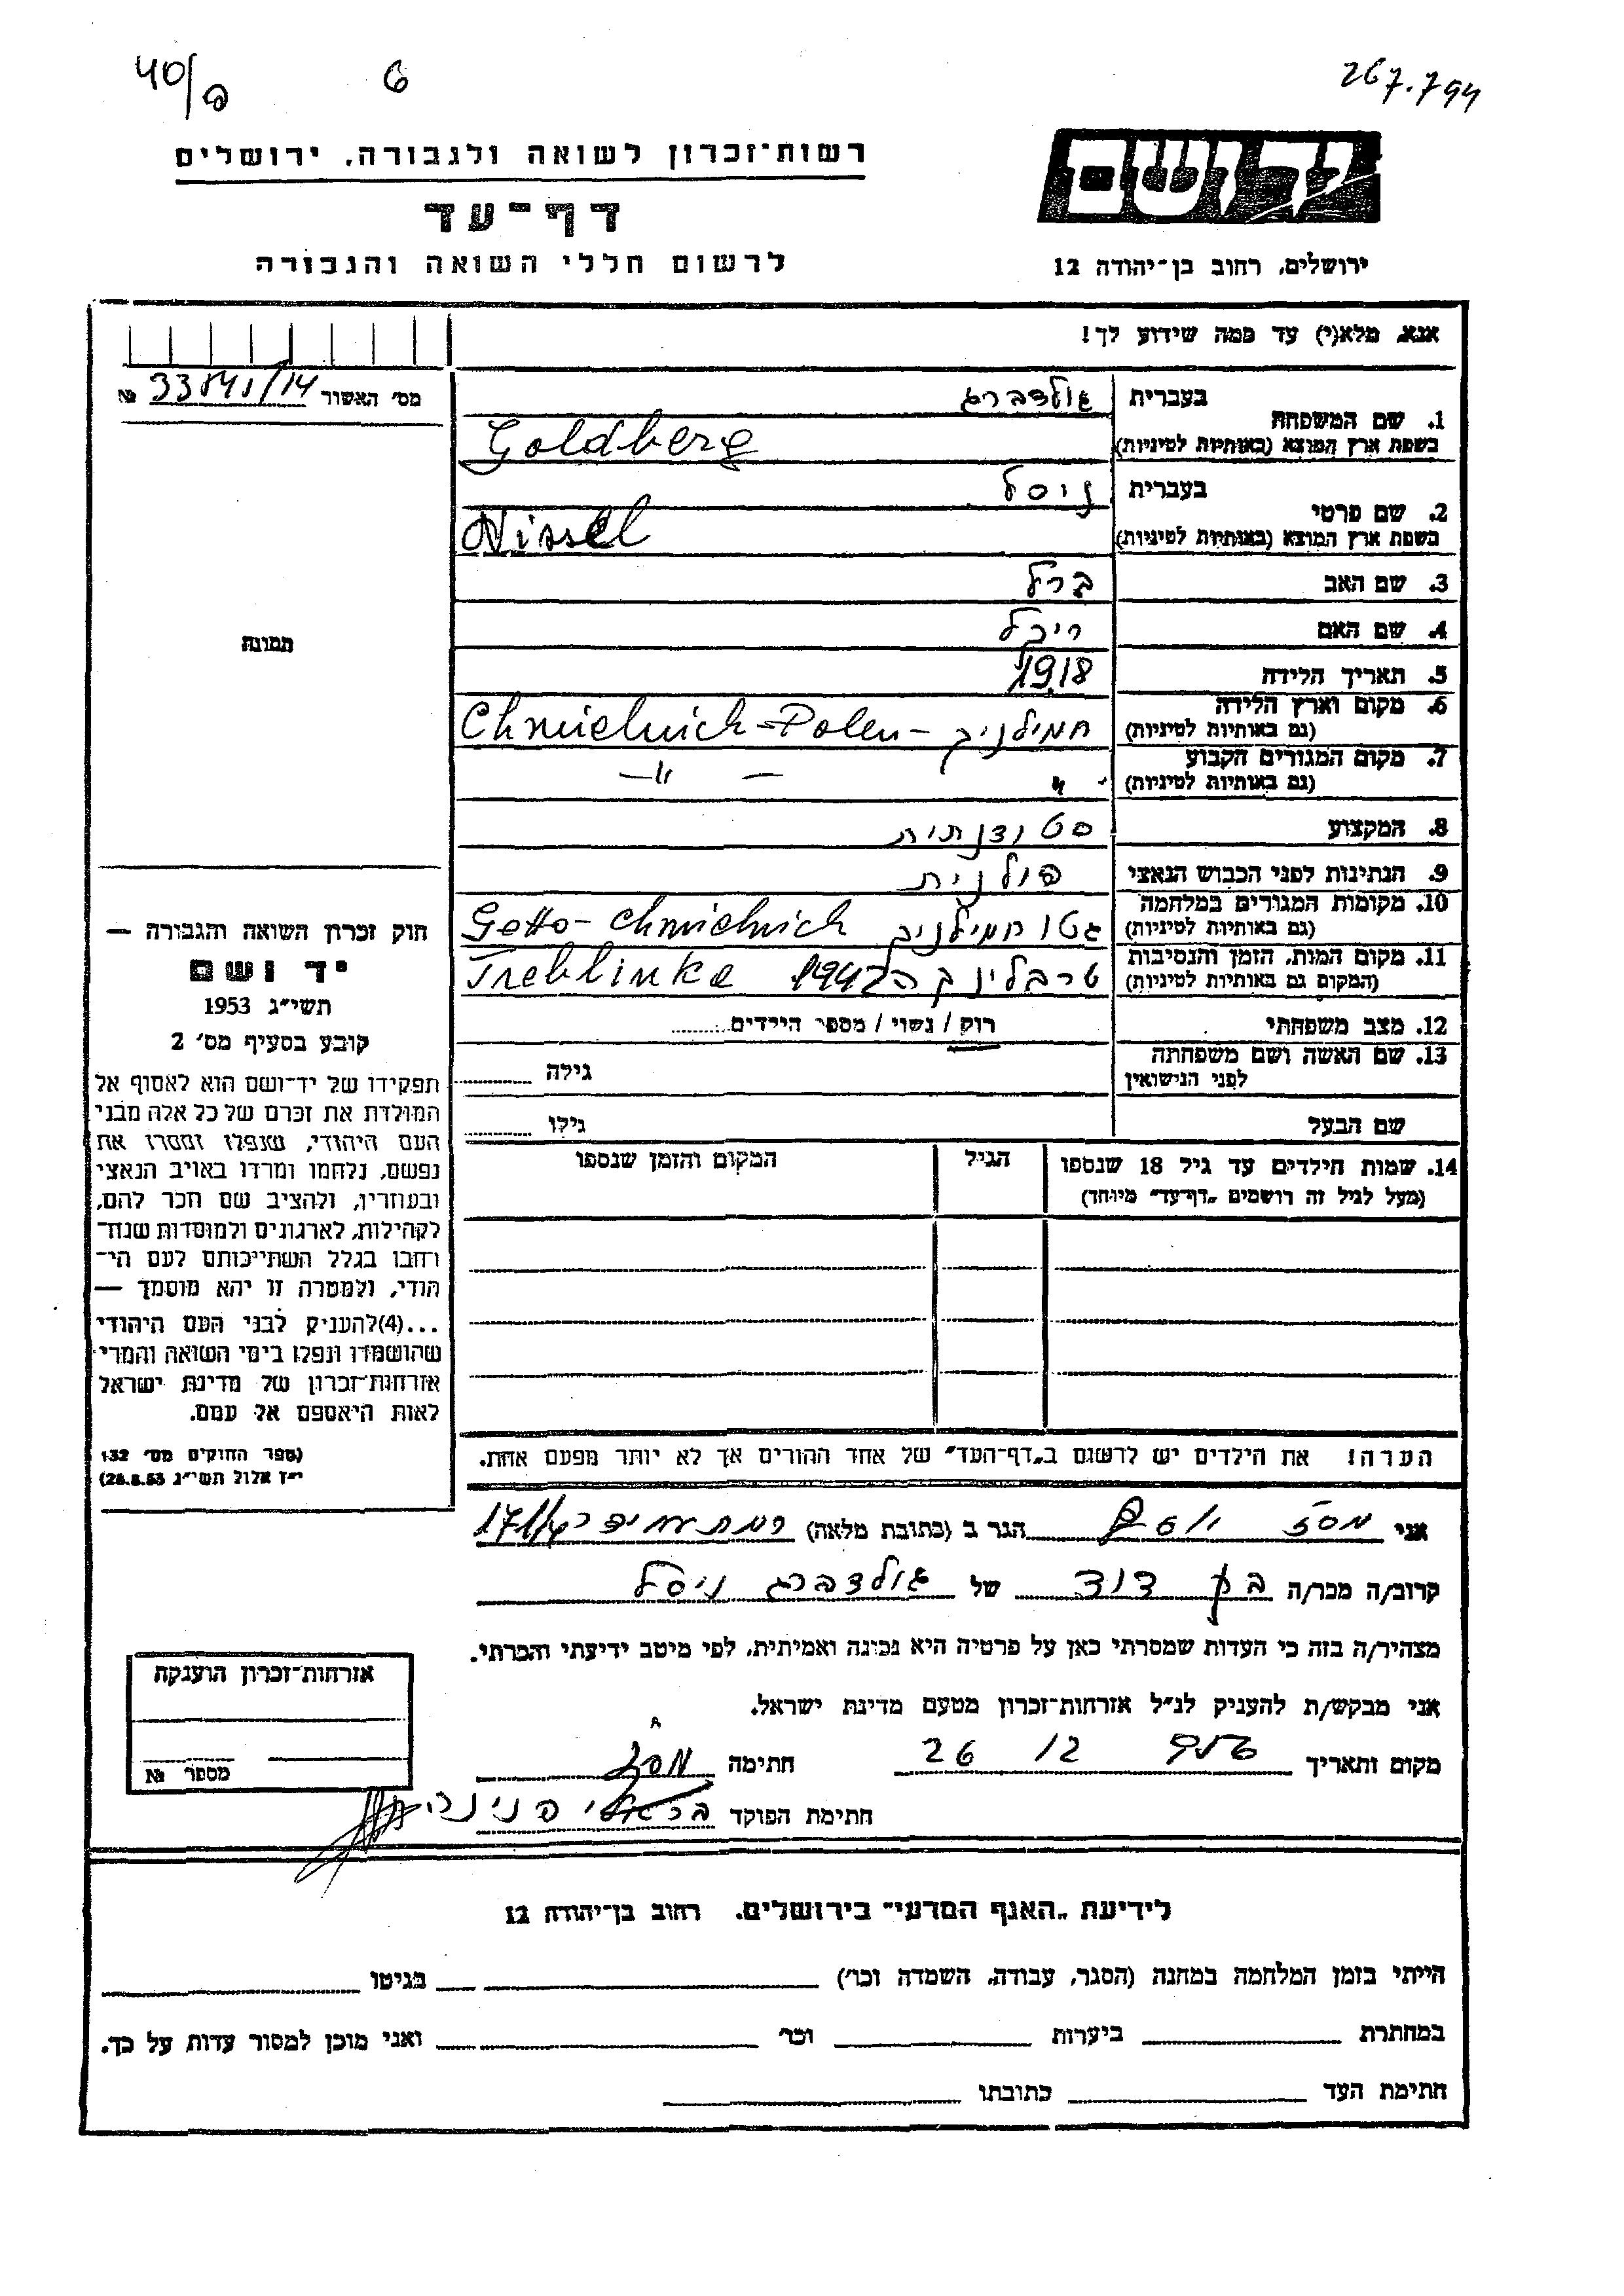 40/פ 6 267.794
יד ושם
ירושלים, רחוב בן־יהודה 12
רשות־זכרון לשואה ולגבורה, ירושלים
דף־עד
לרשום חללי השואה והגבורה
אנא, מלא(י) עד כמה שידוע לך!
מס׳ האשור №
1. שם המשפחה בעברית גולדברג
בשפת ארץ המוצא (באותיות לטיניות) Goldberg
2. שם פרטי בעברית ניסל
בשפת ארץ המוצא (באותיות לטיניות) Nissel
3. שם האב ברל
4. שם האם
5. תאריך הלידה 1918
6. מקום וארץ הלידה חמילניק – Chmielnick - Polen
(גם באותיות לטיניות)
7. מקום המגורים הקבוע – " –
(גם באותיות לטיניות)
8. המקצוע סטודנתית
9. הנתינות לפני הכבוש הנאצי פולנית
10. מקומות המגורים במלחמה גטו חמילניק Getto - Chmielnick
(גם באותיות לטיניות)
11. מקום המות, הזמן והנסיבות טרבלינקה 1942 Treblinka
(המקום גם באותיות לטיניות)
12. מצב משפחתי רוק / נשוי / מספר הילדים
13. שם האשה ושם משפחתה גילה
לפני הנישואין
שם הבעל גילו
14. שמות הילדים עד גיל 18 שנספו הגיל המקום והזמן שנספו
(מעל לגיל זה רושמים „דף־עד״ מיוחד)
הערה! את הילדים יש לרשום ב„דף־העד״ של אחד ההורים אך לא יותר מפעם אחת.
תמונה
חוק זכרון השואה והגבורה —
יד ושם
תשי״ג 1953
קובע בסעיף מס׳ 2
תפקידו של יד־ושם הוא לאסוף אל
המולדת את זכרם של כל אלה מבני
העם היהודי, שנפלו ומסרו את
נפשם, נלחמו ומרדו באויב הנאצי
ובעוזריו, ולהציב שם וזכר להם,
לקהילות, לארגונים ולמוסדות שנח־
רבו בגלל השתייכותם לעם הי־
הודי, ולמטרה זו יהא מוסמך —
...(4)להעניק לבני העם היהודי
שהושמדו ונפלו בימי השואה והמרי
אזרחות־זכרון של מדינת ישראל
לאות היאספם אל עמם.
(ספר החוקים מס׳ 132
י״ז אלול תשי״ג 28.8.53)
אני יוסף הגר ב (כתובת מלאה)
קרוב/ה מכר/ה בן דוד של גולדברג ניסל
מצהיר/ה בזה כי העדות שמסרתי כאן על פרטיה היא נכונה ואמיתית, לפי מיטב ידיעתי והכרתי.
אני מבקש/ת להעניק לנ״ל אזרחות־זכרון מטעם מדינת ישראל.
מקום ותאריך 26 12 חתימה
חתימת הפוקד פנינה
אזרחות־זכרון הוענקה
מספר №
לידיעת „האגף המדעי״ בירושלים, רחוב בן־יהודה 12
הייתי בזמן המלחמה במחנה (הסגר, עבודה, השמדה וכו׳) בגיטו
במחתרת ביערות וכו׳ ואני מוכן למסור עדות על כך.
חתימת העד כתובתו